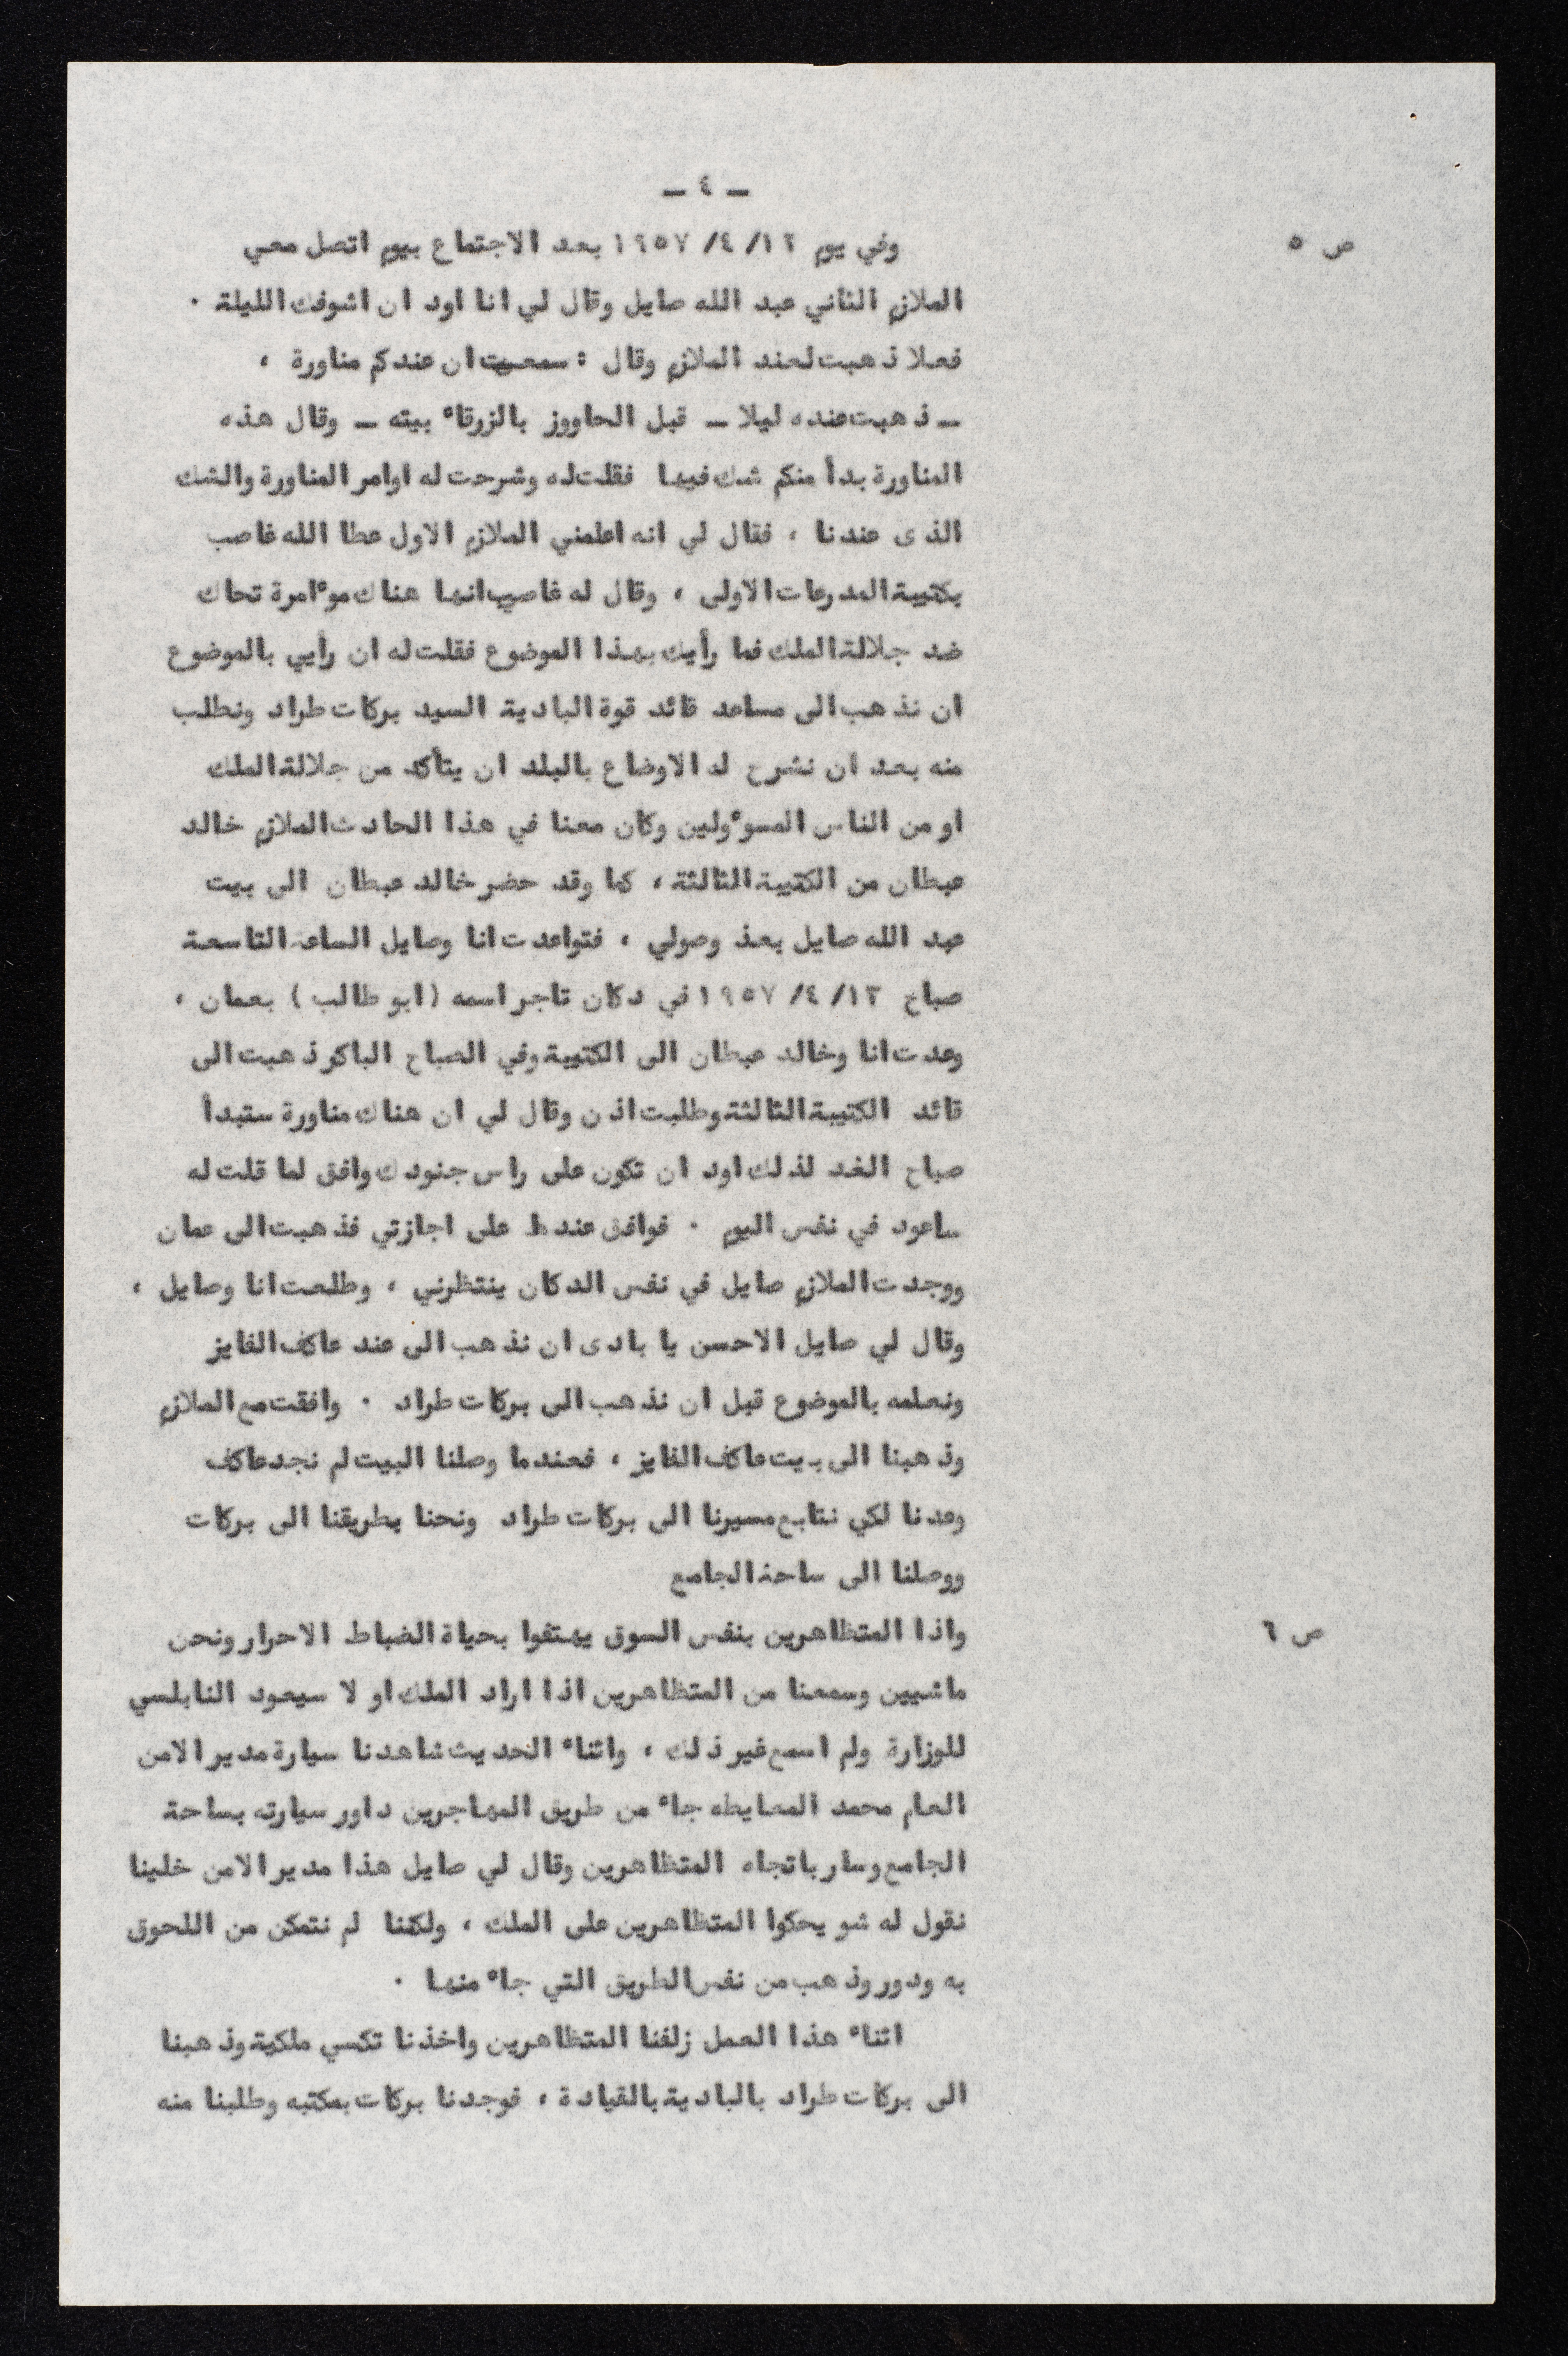 ـ ٤ ـ
ص ٥
وفي يوم ١٢/ ٤/ ١٩٥٧ بعد الاجتماع بيوم اتصل معي
الملازم الثاني عبد الله صايل وقال لي انا اود ان اشوفك الليلة ٠
فعلا ذهبت لعند الملازم وقال : سمعت ان عندكم مناورة ،
ـ ذهبت عنده ليلا ـ قبل الحاووز بالزرقاء بيته ـ وقال هذه
المناورة بدأ منكم شك فيها فقلت له وشرحت له اوامر المناورة والشك
الذى عندنا ، فقال لي انه اعلمني الملازم الاول عطا الله غاصب
بكتيبة المدرعات الاولى ، وقال له غاصب انها هناك موءامرة تحاك
ضد جلالة الملك فما رأيك بهذا الموضوع فقلت له ان رأيي بالموضوع
ان نذهب الى مساعد قائد قوة البادية السيد بركات طراد ونطلب
منه بعد ان نشرح له الاوضاع بالبلد ان يتأكد من جلالة الملك
او من الناس المسوءولين وكان معنا في هذا الحادث الملازم خالد
عبطان من الكتيبة الثالثة ، كما وقد حضر خالد عبطان الى بيت
عبد الله صايل بعذ وصولي ، فتواعدت انا وصايل الساعة التاسعة
صباح ١٣/ ٤/ ١٩٥٧ في دكان تاجر اسمه (ابو طالب) بعمان ،
وعدت انا وخالد عبطان الى الكتيبة وفي الصباح الباكر ذهبت الى
قائد الكتيبة الثالثة وطلبت اذن وقال لي ان هناك مناورة ستبدأ
صباح الغد لذلك اود ان تكون على راس جنودك وافق لما قلت له
ساعود في نفس اليوم ٠ فوافق عندها على اجازتي فذهبت الى عمان
ووجدت الملازم صايل في نفس الدكان ينتظرني ، وطلعت انا وصايل ،
وقال لي صايل الاحسن يا بادى ان نذهب الى عند عاكف الفايز
ونعلمه بالموضوع قبل ان نذهب الى بركات طراد ٠ وافقت مع الملازم
وذهبنا الى بيت عاكف الفايز ، فعندما وصلنا البيت لم نجد عاكف
وعدنا لكي نتابع مسيرنا الى بركات طراد ونحنا بطريقنا الى بركات
ووصلنا الى ساحة الجامع
ص ٦
واذا المتظاهرين بنفس السوق يهتفوا بحياة الضباط الاحرار ونحن
ماشيين وسمعنا من المتظاهرين اذا اراد الملك او لا سيعود النابلسي
للوزارة ولم اسمع غير ذلك ، واثناء الحديث شاهدنا سيارة مدير الامن
العام محمد المعايطه جاء من طريق المهاجرين داور سيارته بساحة
الجامع وسار باتجاه المتظاهرين وقال لي صايل هذا مدير الامن خلينا
نقول له شو يحكوا المتظاهرين على الملك ، ولكننا لم نتمكن من اللحوق
به ودور وذهب من نفس الطريق التي جاء منها ٠
اثناء هذا العمل زلفنا المتظاهرين واخذنا تكسي ملكية وذهبنا
الى بركات طراد بالبادية بالقيادة ، فوجدنا بركات بمكتبه وطلبنا منه